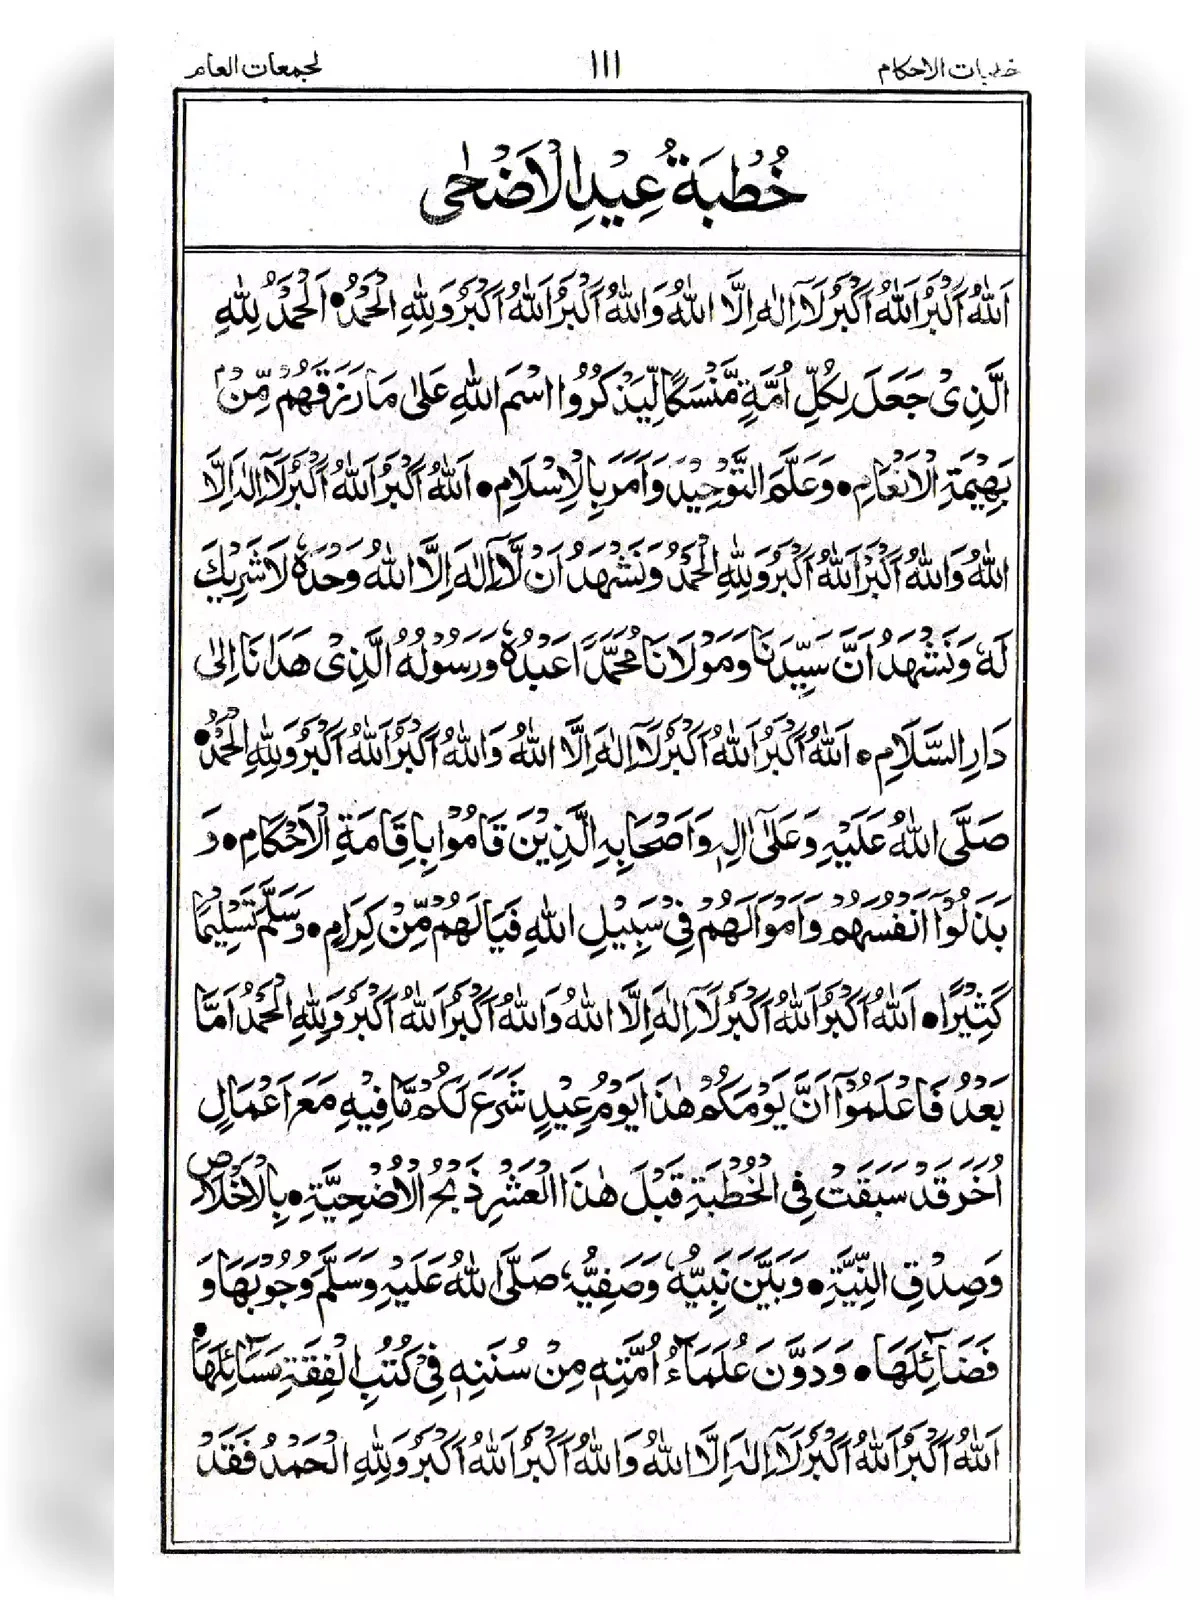 خطبات الاحكام
١١١
لجمعات العام
خُطْبَةُ عِيْدِ الْاَضْحٰى
اَللهُ اَكْبَرُ اَللهُ اَكْبَرُ لَآ اِلٰهَ اِلَّا اللهُ وَاللهُ اَكْبَرُ اَللهُ اَكْبَرُ وَلِلّٰهِ الْحَمْدُ• اَلْحَمْدُ لِلّٰهِ
الَّذِىْ جَعَلَ لِكُلِّ اُمَّةٍ مَّنْسَكًا لِّيَذْكُرُوا اسْمَ اللهِ عَلٰى مَا رَزَقَهُمْ مِّنْۢ
بَهِيْمَةِ الْاَنْعَامِ• وَعَلَّمَ التَّوْحِيْدَ وَاَمَرَ بِالْاِسْلَامِ• اَللهُ اَكْبَرُ اَللهُ اَكْبَرُ لَآ اِلٰهَ اِلَّا
اللهُ وَاللهُ اَكْبَرُ اَللهُ اَكْبَرُ وَلِلّٰهِ الْحَمْدُ وَنَشْهَدُ اَنْ لَّآ اِلٰهَ اِلَّا اللهُ وَحْدَهٗ لَا شَرِيْكَ
لَهٗ وَنَشْهَدُ اَنَّ سَيِّدَنَا وَمَوْلَانَا مُحَمَّدًا عَبْدُهٗ وَرَسُوْلُهُ الَّذِىْ هَدَانَا اِلٰى
دَارِ السَّلَامِ• اَللهُ اَكْبَرُ اَللهُ اَكْبَرُ لَآ اِلٰهَ اِلَّا اللهُ وَاللهُ اَكْبَرُ اَللهُ اَكْبَرُ وَلِلّٰهِ الْحَمْدُ•
صَلَّى اللهُ عَلَيْهِ وَعَلٰٓى اٰلِهٖ وَاَصْحَابِهِ الَّذِيْنَ قَامُوْا بِاِقَامَةِ الْاَحْكَامِ• وَ
بَذَلُوْٓا اَنْفُسَهُمْ وَاَمْوَالَهُمْ فِىْ سَبِيْلِ اللهِ فَيَا لَهُمْ مِّنْ كِرَامٍ• وَسَلَّمَ تَسْلِيْمًا
كَثِيْرًا• اَللهُ اَكْبَرُ اَللهُ اَكْبَرُ لَآ اِلٰهَ اِلَّا اللهُ وَاللهُ اَكْبَرُ اَللهُ اَكْبَرُ وَلِلّٰهِ الْحَمْدُ اَمَّا
بَعْدُ فَاعْلَمُوْٓا اَنَّ يَوْمَكُمْ هٰذَا يَوْمُ عِيْدٍ شَرَعَ لَكُمْ مَّا فِيْهِ مَعَ اَعْمَالٍ
اُخَرَ قَدْ سَبَقَتْ فِى الْخُطْبَةِ قَبْلَ هٰذَا الْعَشْرِ ذَبْحُ الْاُضْحِيَّةِ• بِالْاِخْلَاصِ
وَصِدْقِ النِّيَّةِ• وَبَيَّنَ نَبِيُّهٗ وَصَفِيُّهٗ صَلَّى اللهُ عَلَيْهِ وَسَلَّمَ وُجُوْبَهَا وَ
فَضَآئِلَهَا• وَدَوَّنَ عُلَمَآءُ اُمَّتِهٖ مِنْ سُنَنِهٖ فِىْ كُتُبِ الْفِقْهِ مَسَآئِلَهَا•
اَللهُ اَكْبَرُ اَللهُ اَكْبَرُ لَآ اِلٰهَ اِلَّا اللهُ وَاللهُ اَكْبَرُ اَللهُ اَكْبَرُ وَلِلّٰهِ الْحَمْدُ فَقَدْ